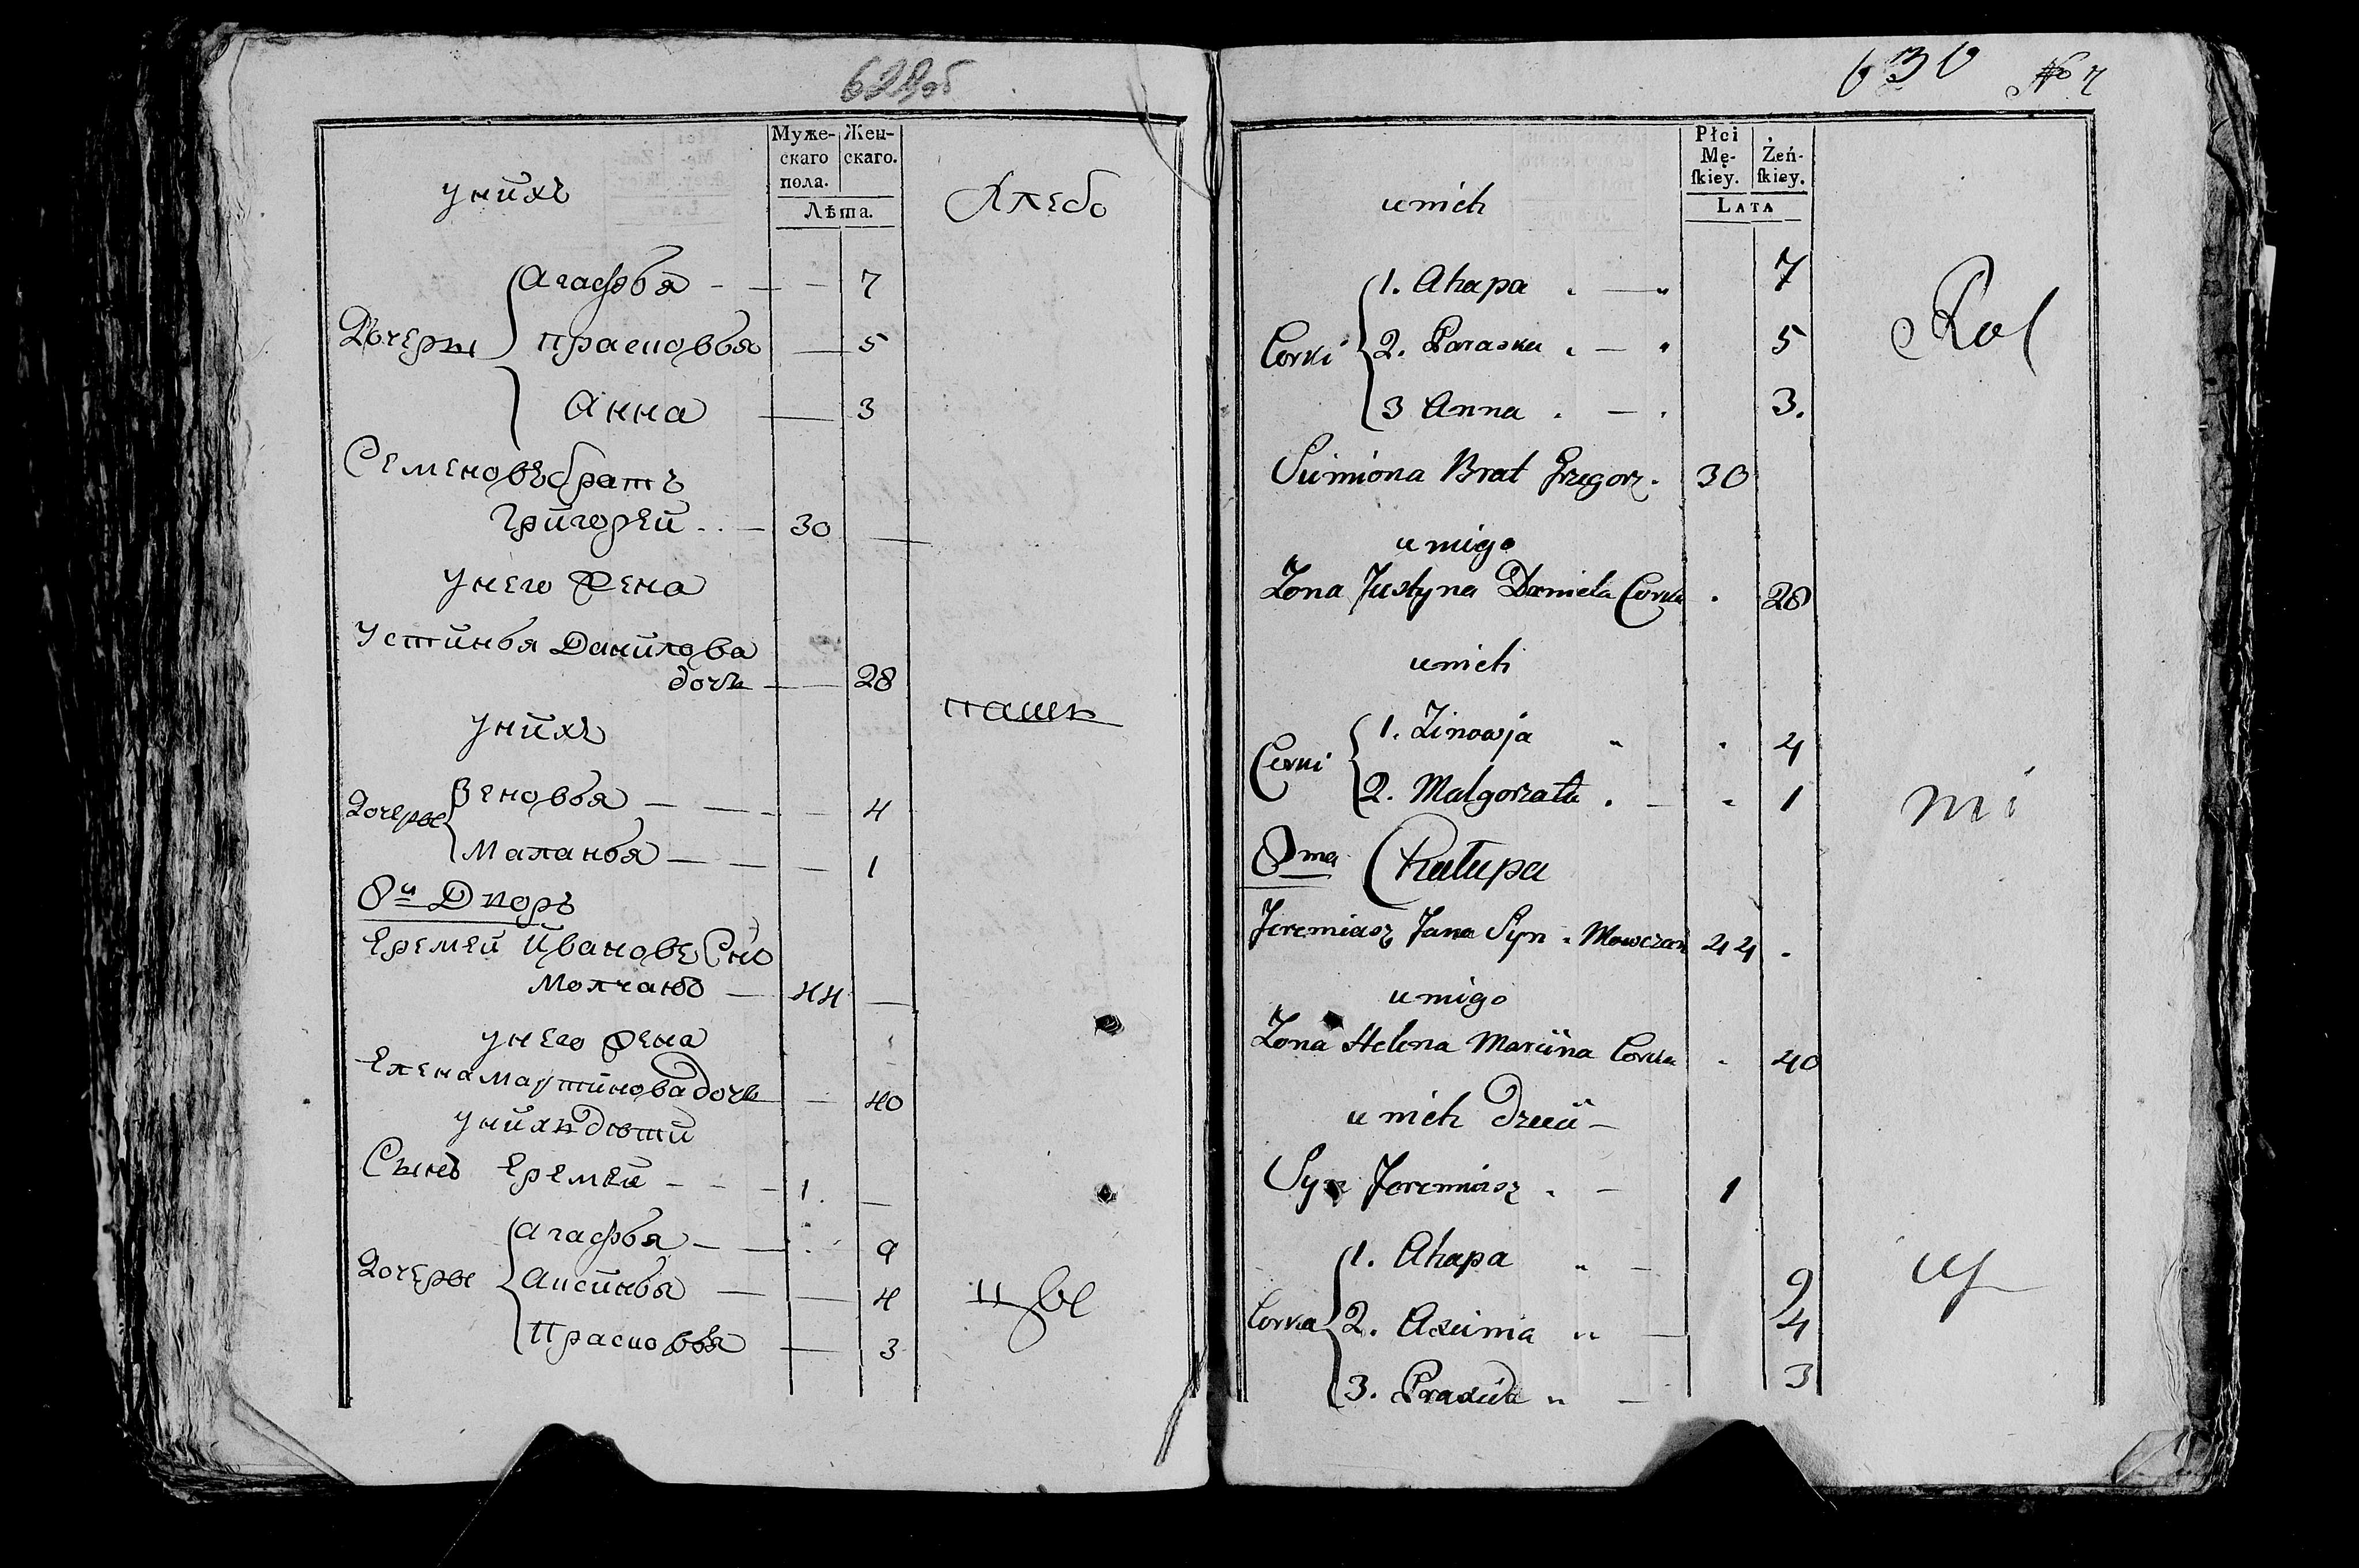 629об
Муже-
скаго
пола.
Жен-
скаго.
Лѣта.
унихъ
Хлебо
Дочеры
Агафья - — - 7
Прасковья — 5
Анна — 3
Семеновъ братъ
Григорей - - — 30 —
унего жена
Устинья Данилова
дочь — 28
пашь
унихъ
Дочеры
Зеновья — — - — 4
Маланья — — — 1
8й Дворъ
Еремей Ивановъ Снъ
Молчанъ — 44 —
унего жена
Елена Мартинова дочь — 40
унихъ дѣти
Сынъ Еремей - - - 1. —
Дочеры
Агафья — — 9
Аксинья — — 4
Прасковья — 3
цы
630 № 7
Płci
Mę-
ſkiey.
Żeń-
ſkiey.
LATA
u nich
Corki
1. Ahapa 7
2. Paraska 5
3 Anna 3.
Rol
Simiona Brat Grzegorz. 30
u niego
Zona Justyna Daniela Corka 28
u nich
Corki
1. Zinowja 4
2. Malgorzata 1
ni
8ma Chałupa
Jeremiasz Jana Syn Mowczan 44
u niego
Zona Helena Marcina Corka 40
u nich Dzieci —
Syn Jeremiasz 1
Corka
1. Ahapa 9
2. Axinia 4
3. Praxeda 3
cy